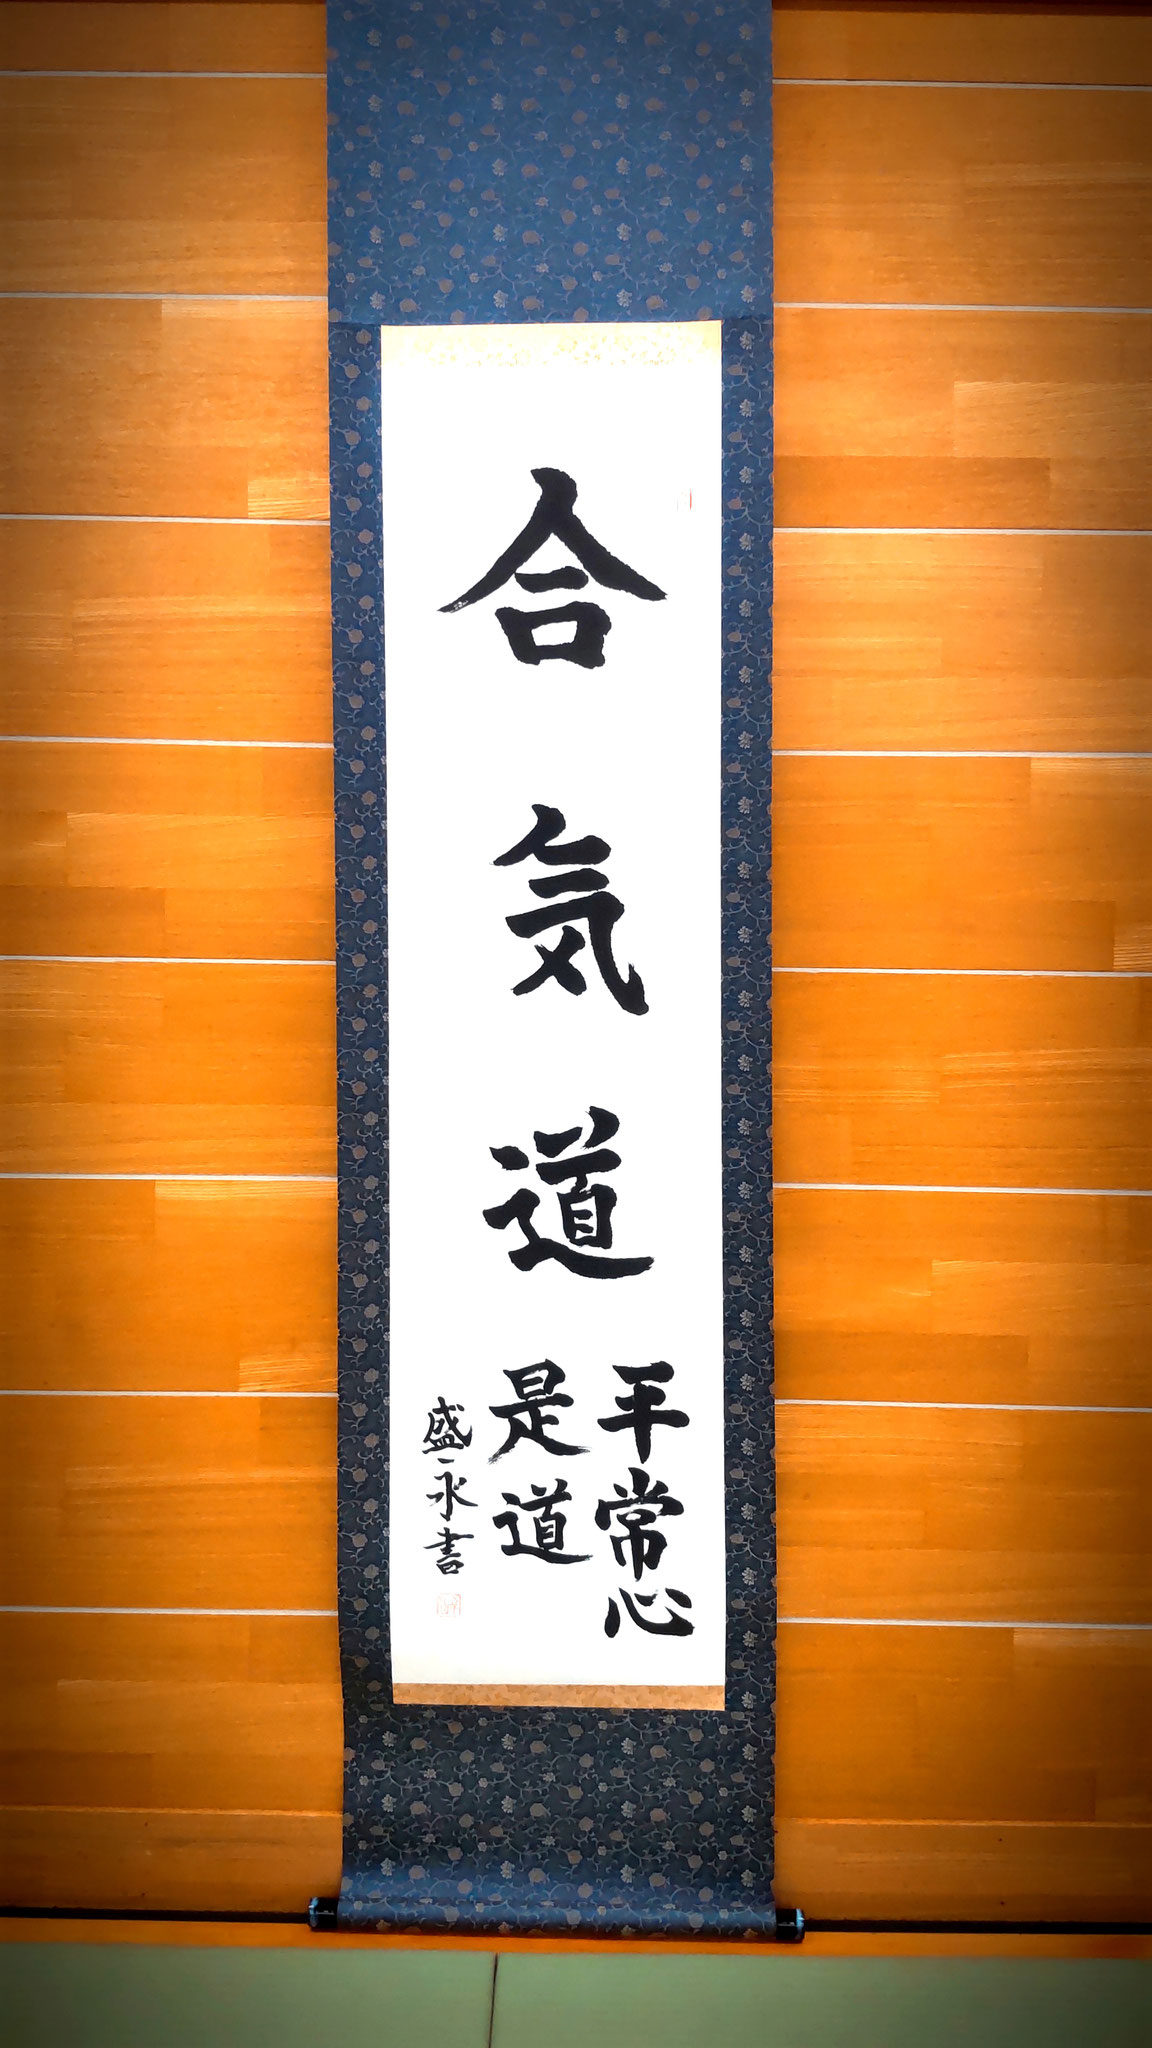 合気道
平常心
是道
盛永書